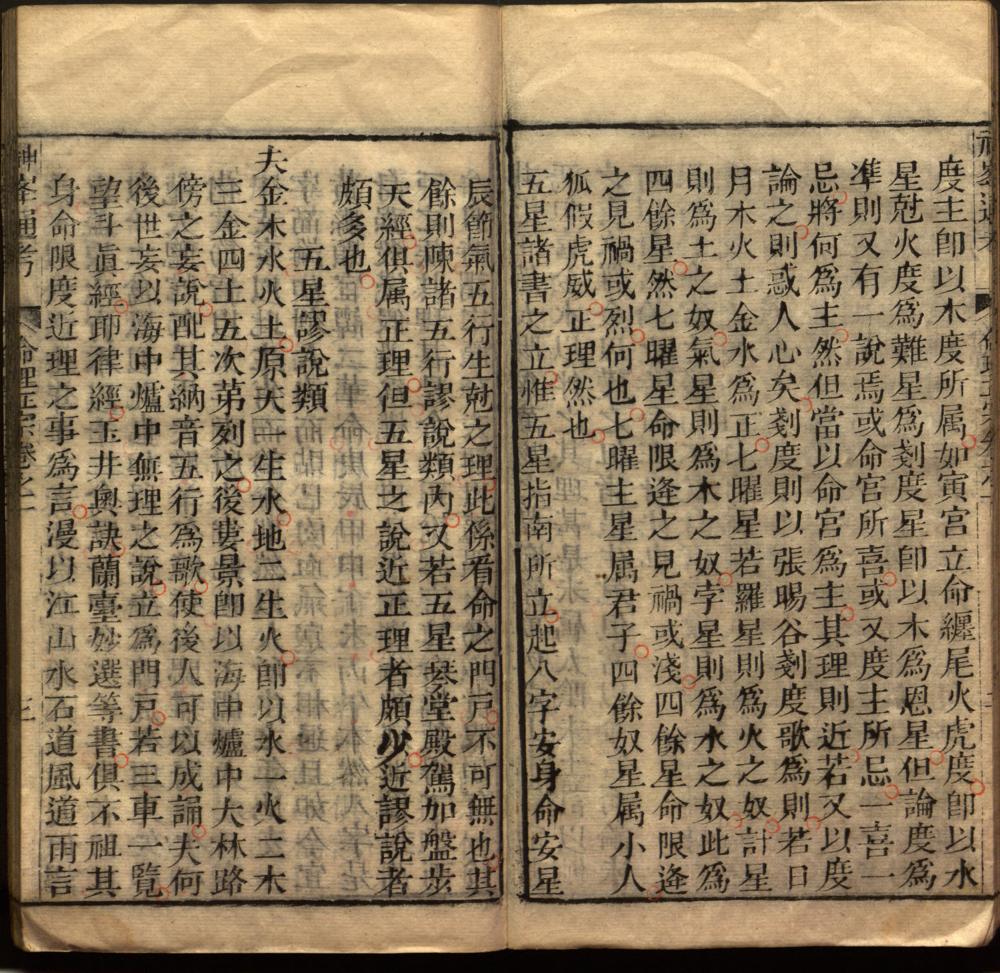 度主卽以木度所属如寅宮立命纏尾火虎度卽以水
星尅火度爲難星爲剗度星卽以木爲恩星但論度爲
準則又有一說焉或命宮所喜或又度主所忌一喜一
忌將何爲主然但當以命宮爲主其理則近若又以度
論之則惑人心矣剗度則以張賜谷剗度歌爲則若日
月木火土金水爲正七曜星若羅星則爲火之奴計星
則爲土之奴氣星則爲木之奴孛星則爲水之奴此爲
四餘星然七曜星命限逢之見禍或淺四餘星命限逢
之見禍或烈何也七曜主星属君子四餘奴星属小人
狐假虎威正理然也
五星諸書之立惟五星指南所立起八字安身命安星
辰節氣五行生尅之理此係看命之門戸不可無也其
餘則陳諸五行謬說類內又若五星琴堂殿駕加盤步
天經俱属正理但五星之說近正理者頗少近謬說者
頗多也
五星謬說類
夫金木水火土原天一生水地二生火卽以水一火二木
三金四土五次第列之後婁景卽以海中爐中大林路
傍之妄說配其納音五行爲歌使後人可以成誦夫何
後世妄以海中爐中無理之說立爲門戸若三車一覽
望斗眞經耶律經玉井奥訣蘭臺妙選等書俱不祖其
身命限度近理之事爲言漫以江山水石道風道雨言
神峯通考
命理正宗卷之一
三